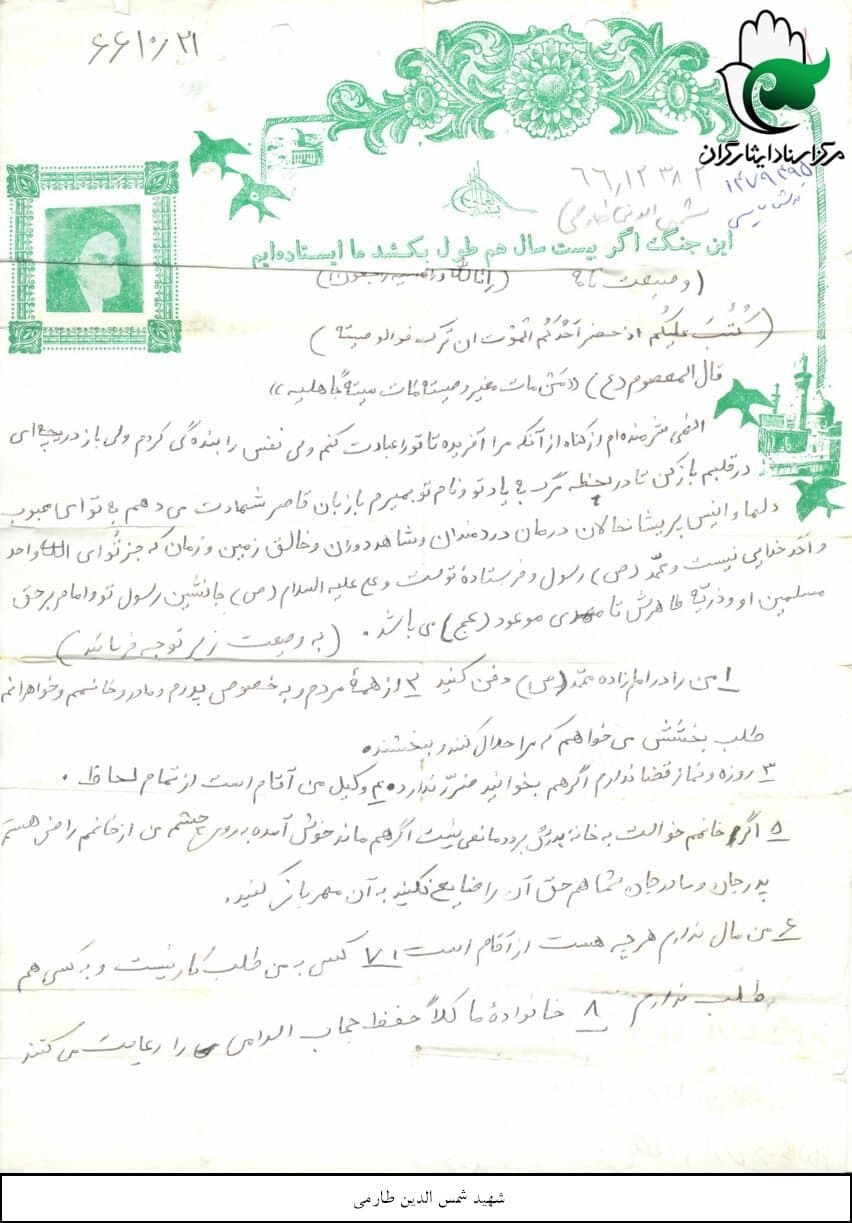 ۶۶/۱۰/۲۱
مرکز اسناد ایثارگران
۱۴۷۹۴۹۵
۶۶,۱۲۳۸۲
شمس الدین طارمی
این جنگ اگر بیست سال هم طول بکشد ما ایستاده‌ایم
(وصیعت نامه) (انا لله و انا الیه راجعون)
(کُتُبَ عَلَیکُم اذ حضر اَحَدَکُم المَوت ان ترک خو الوصیته)
قال المعصوم (ع) ((مَن مات بغیر وصیته مٰات میتهً جٰاهلیه))
الهی شرمنده ام از گناه از آنکه مرا آفریده تا تو را عبادت کنم ولی نفس را بنده گی کردم ولی باز دریچه ای
در قلبم باز کن تا در لحظه مرگ به یاد تو و نام تو بمیرم با زبان قاصر شهادت می دهم به تو ای محبوب
دلها و انیس پریشانحالان درمان دردمندان و شاهد دوران و خالق زمین و زمان که جز تُو ای الله واحد
و اَحَد خدایی نیست و محمّد (ص) رسول و فرستادهٔ توست و علی علیه السلام (ص) جانشین رسول تو و امام برحق
مسلمین او و ذریّه طاهرش تا مهدی موعود (عج) می باشد. (به وصیعت زیر توجه فرمائید)
۱ من را در امامزاده محمّد (ص) دفن کنید ۲ از همهٔ مردم و به خصوص پدرم و مادر و خانمم و خواهرانم
طلب بخشُش می خواهم که مرا حلال کنند و ببخشند.
۳ روزه و نماز قضا ندارم اگر هم بخوانید ضرّر ندارد ۴ وکیل من آقام است از تمام لحاظ.
۵ اگر خانمم خوالت به خانهٔ پدرش برود مانعی نیست اگر هم ماند خوش آمده به روی چشم من از خانمم راضی هستم
پدر جان و مادر جان شما هم حق آن را ضایع نکنید به آن مهربانی کنید.
۶ من مال ندارم هر چه هست از آقام است ۷ کسی به من طلب کار نیست و به کسی هم
طلب ندارم ۸ خانوادهٔ ما کلاً حفظ حجاب اسلامی را رعایت می کنند
شهید شمس الدین طارمی